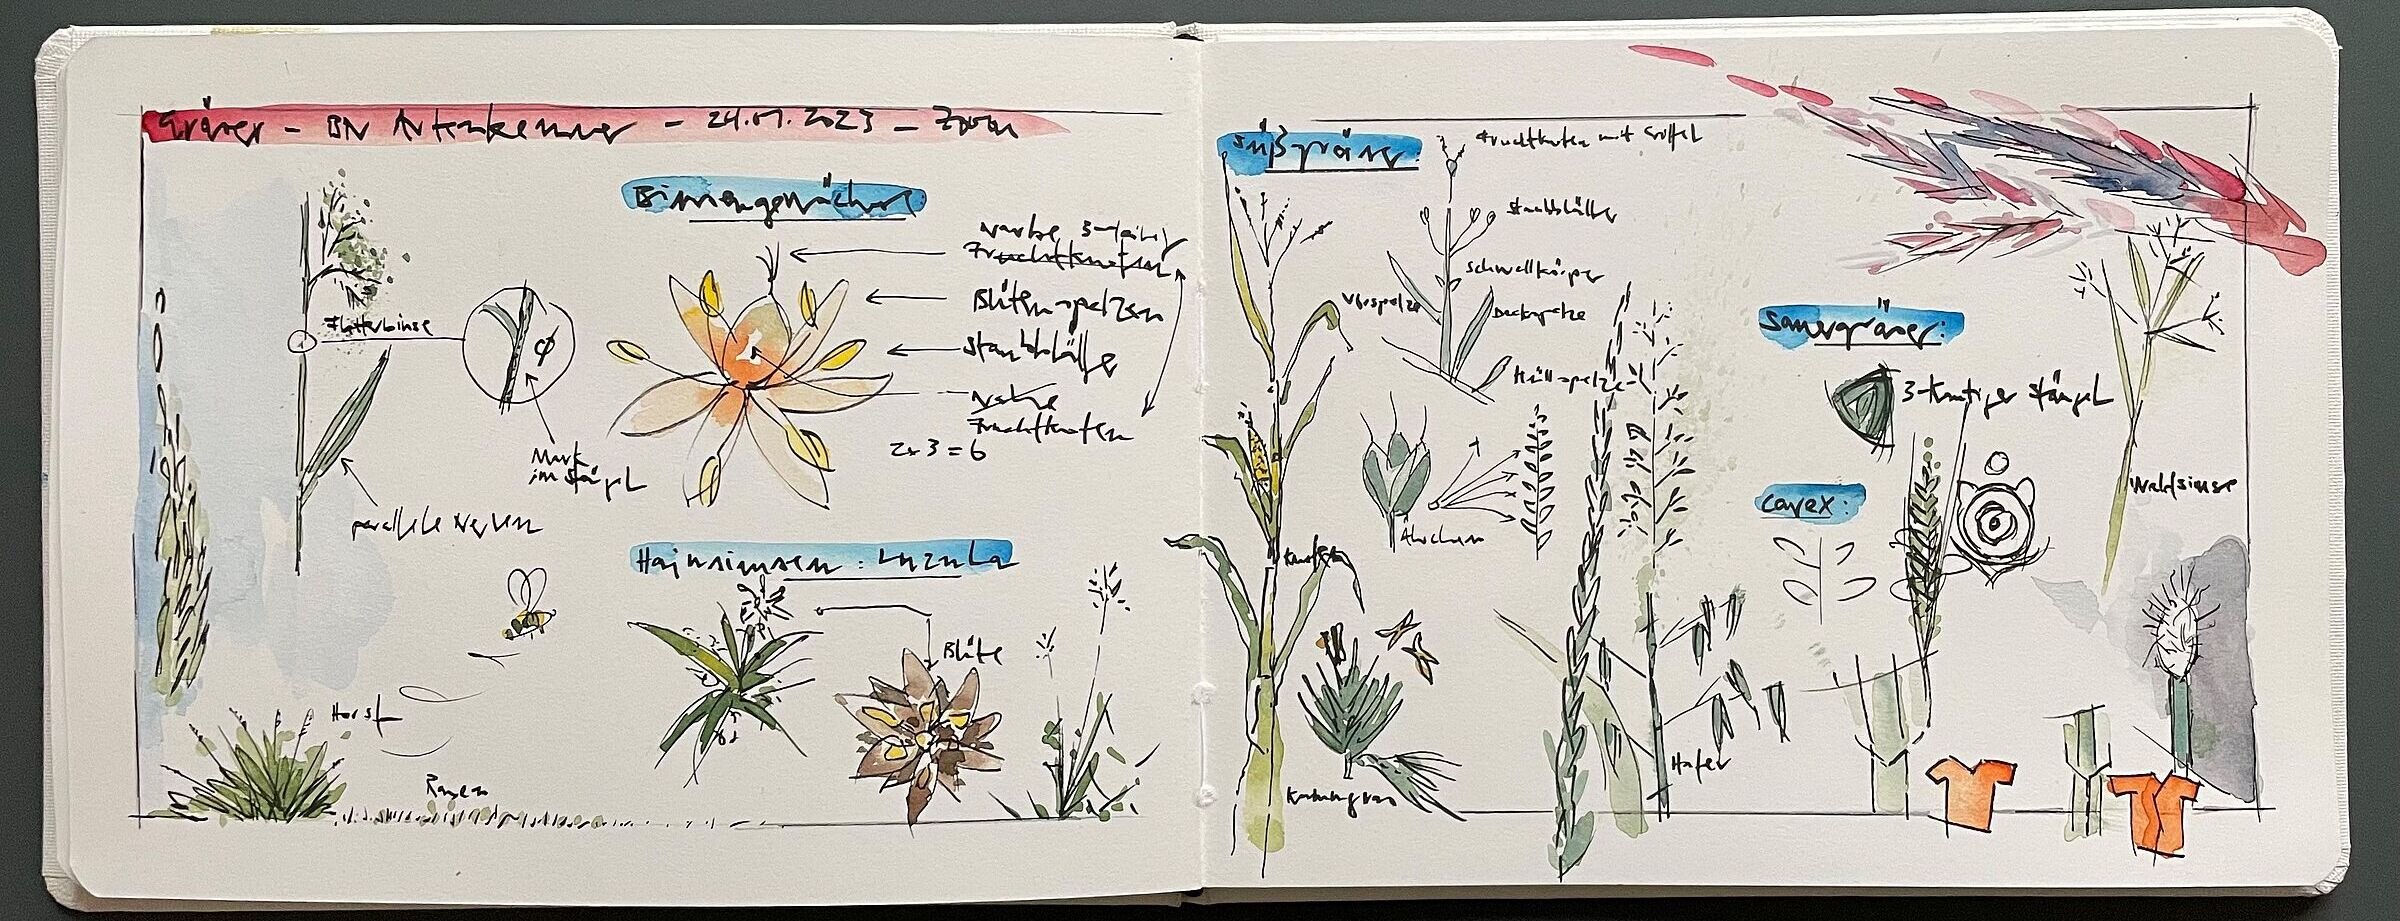 Gräser - BN Artenkenner - 24.01.2023 - Zoom
Binsengewächse
Narbe 3-teilig
Fruchtknoten
Blütenspelzen
Staubblätter
Narbe
Fruchtknoten
2x3=6
Flatterbinse
Mark
im Stängel
parallele Nerven
Hainsimsen: Luzula
Blüte
Horst
Rasen
Süßgräser:
Fruchtknoten mit Griffel
Staubblätter
Schwellkörper
Vorspelze
Deckspelze
Hüllspelze
Ährchen
Knoten
Kammgras
Hafer
Sauergräser:
3-kantiger Stängel
Carex:
Waldsimse